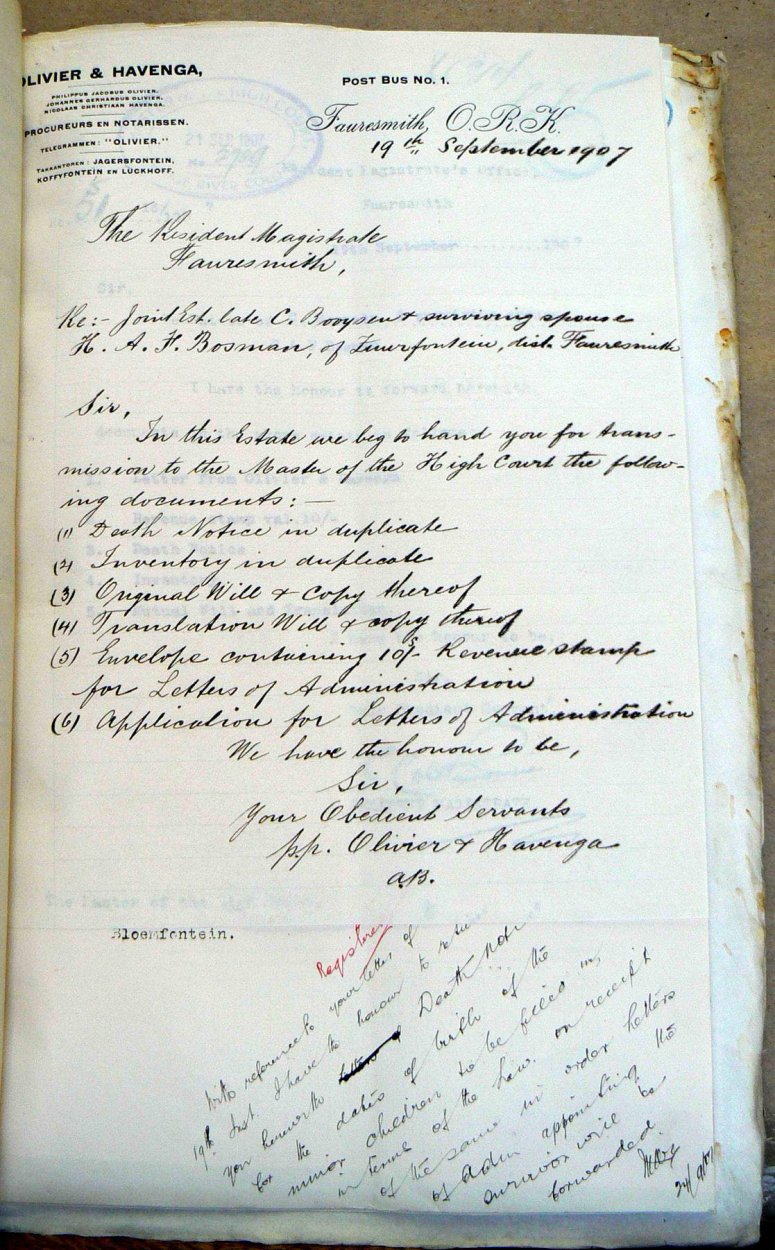 OLIVIER & HAVENGA,
PHILIPPUS JACOBUS OLIVIER.
JOHANNES GERHARDUS OLIVIER.
NICOLAAS CHRISTIAAN HAVENGA.
PROCUREURS EN NOTARISSEN.
TELEGRAMMEN: "OLIVIER."
TAKKANTOREN: JAGERSFONTEIN,
KOFFYFONTEIN EN LUCKHOFF.
POST BUS No. 1.
Fauresmith, O.R.K.
19th September 1907
21 SEP 1907
Fauresmith
The Resident Magistrate
Fauresmith,
Re:- Joint Est. late C. Booysen & surviving spouse
H. A. F. Bosman, of Zuurfontein, dist. Fauresmith
Sir,
In this Estate we beg to hand you for trans-
mission to the Master of the High Court the follow-
ing documents: —
(1) Death Notice in duplicate
(2) Inventory in duplicate
(3) Original Will & copy thereof
(4) Translation Will & copy thereof
(5) Envelope containing 10/- Revenue stamp
for Letters of Administration
(6) Application for Letters of Administration
We have the honour to be,
Sir,
Your Obedient Servants
p.p. Olivier & Havenga
a.B.
Bloemfontein.
Registered
With reference to your letter of
19th Inst. I have the honour to return
you herewith Death Notice
for the dates of birth of the
minor children to be filled in,
in terms of the Law. on receipt
of the same in order Letters
of Adm. appointing the
survivor will be
forwarded.
24/9/07